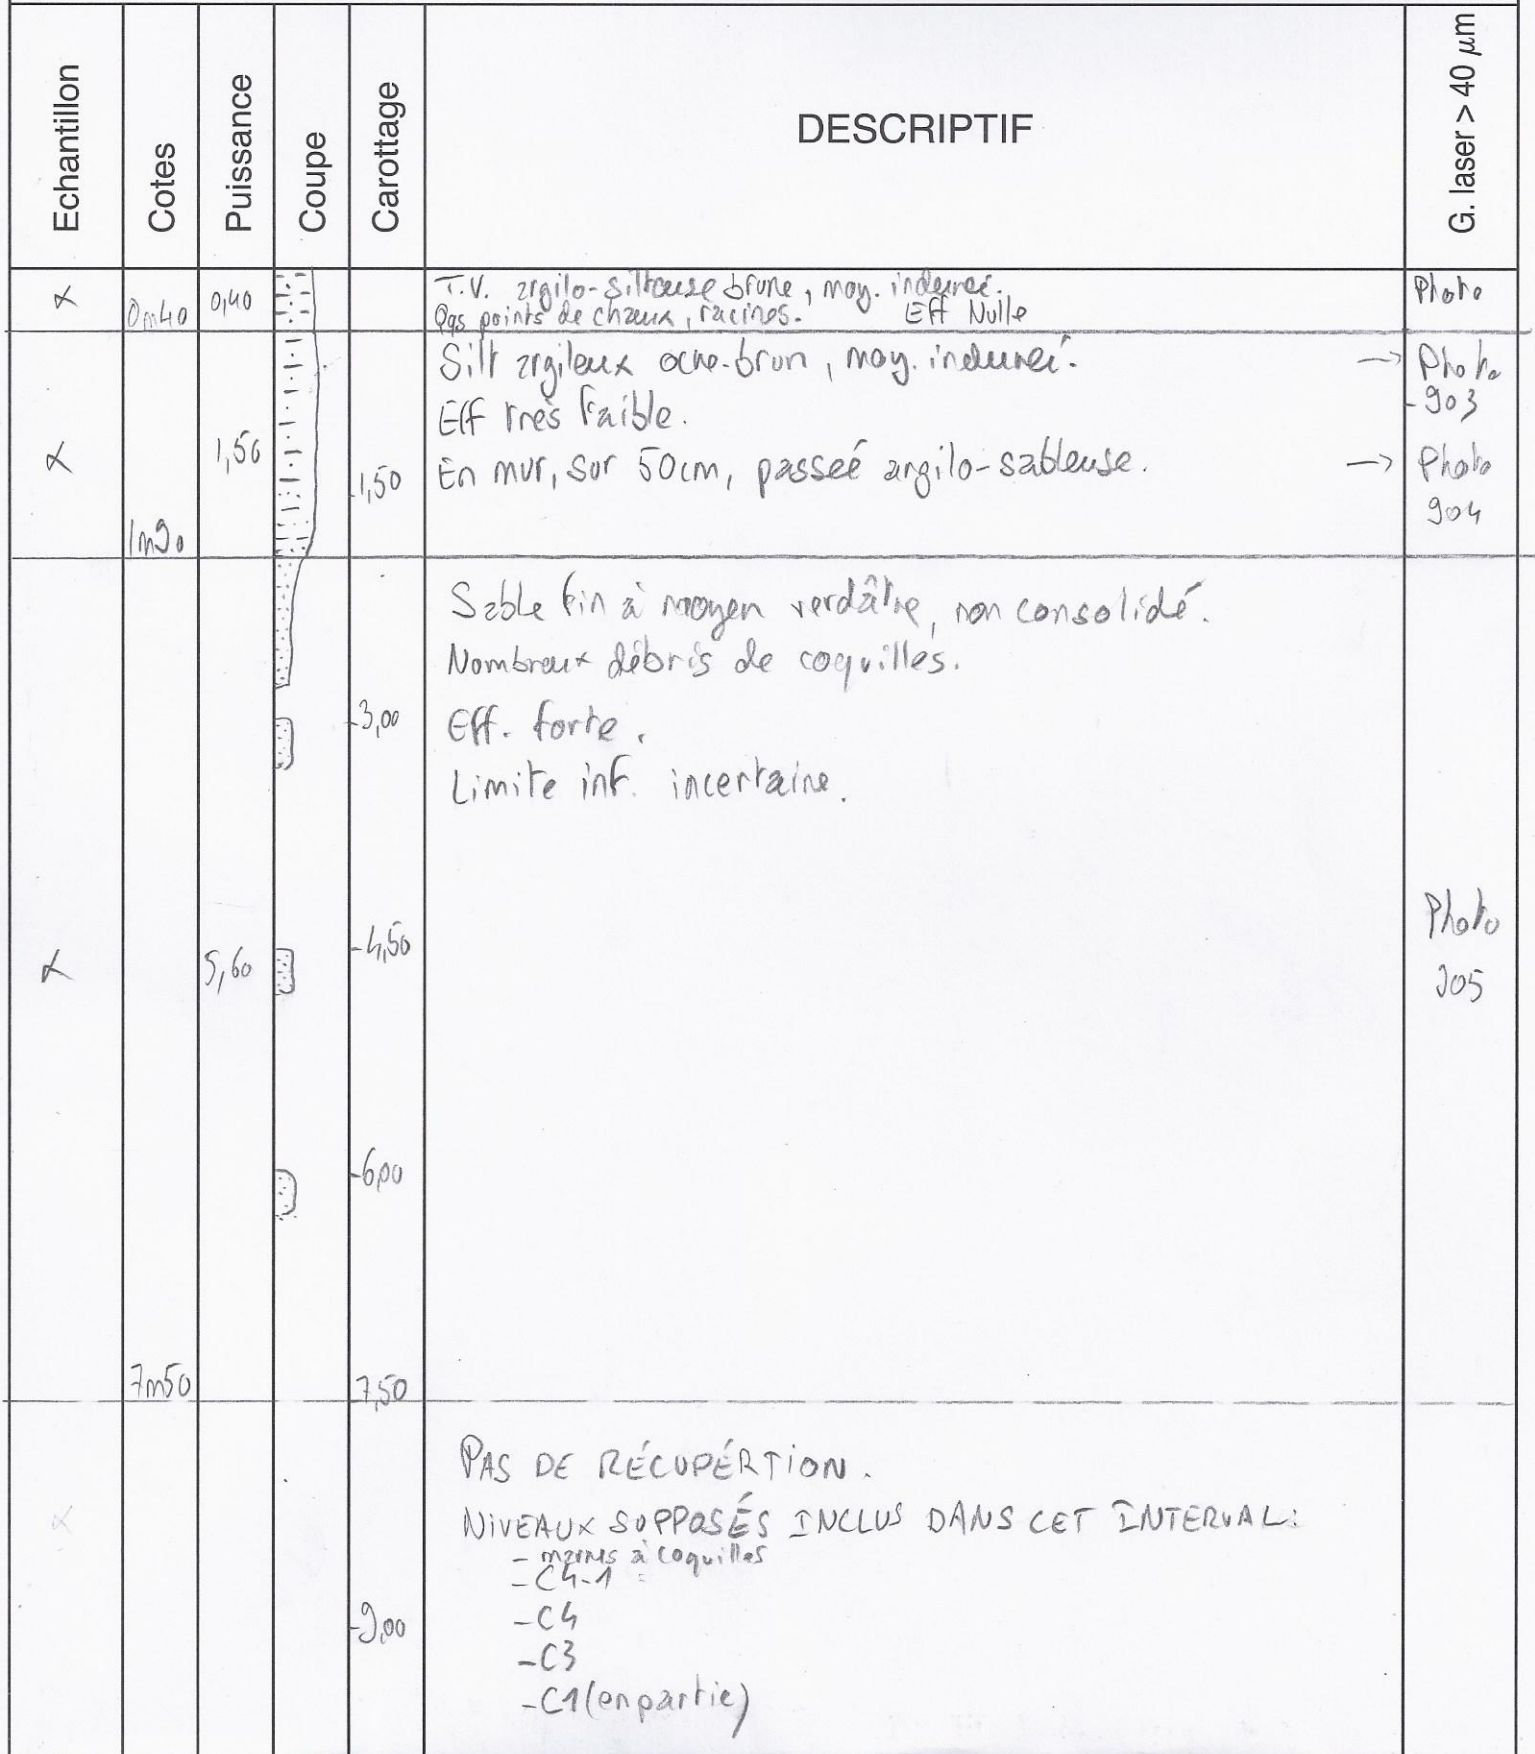 Echantillon
Cotes
Puissance
Coupe
Carottage
DESCRIPTIF
G. laser > 40 µm
0m40
0,40
T.V. argilo-silteuse brune, moy. indurée.
Qqs points de chaux, racines. Eff Nulle
Photo
Silt argileux ocre-brun, moy. induré.
Eff très faible.
En mur, sur 50cm, passée argilo-sableuse.
→ Photo
-903
→ Photo
904
1,50
1,50
1m90
Sable fin à moyen verdâtre, non consolidé.
Nombreux débris de coquilles.
3,00
Eff. forte.
Limite inf. incertaine.
Photo
905
4,50
5,60
6,00
7m50
7,50
PAS DE RÉCUPÉRTION.
NIVEAUX SUPPOSÉS INCLUS DANS CET INTERVAL:
- marnes à coquilles
- C4-1
- C4
9,00
- C3
- C1 (en partie)